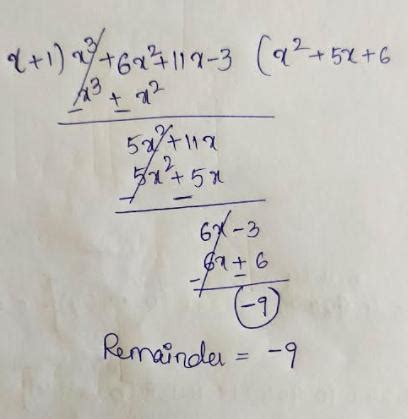 x+1) x³ + 6x² + 11x - 3 (x² + 5x + 6
x³ + x²
5x² + 11x
5x² + 5x
6x - 3
6x + 6
-9
Remainder = -9